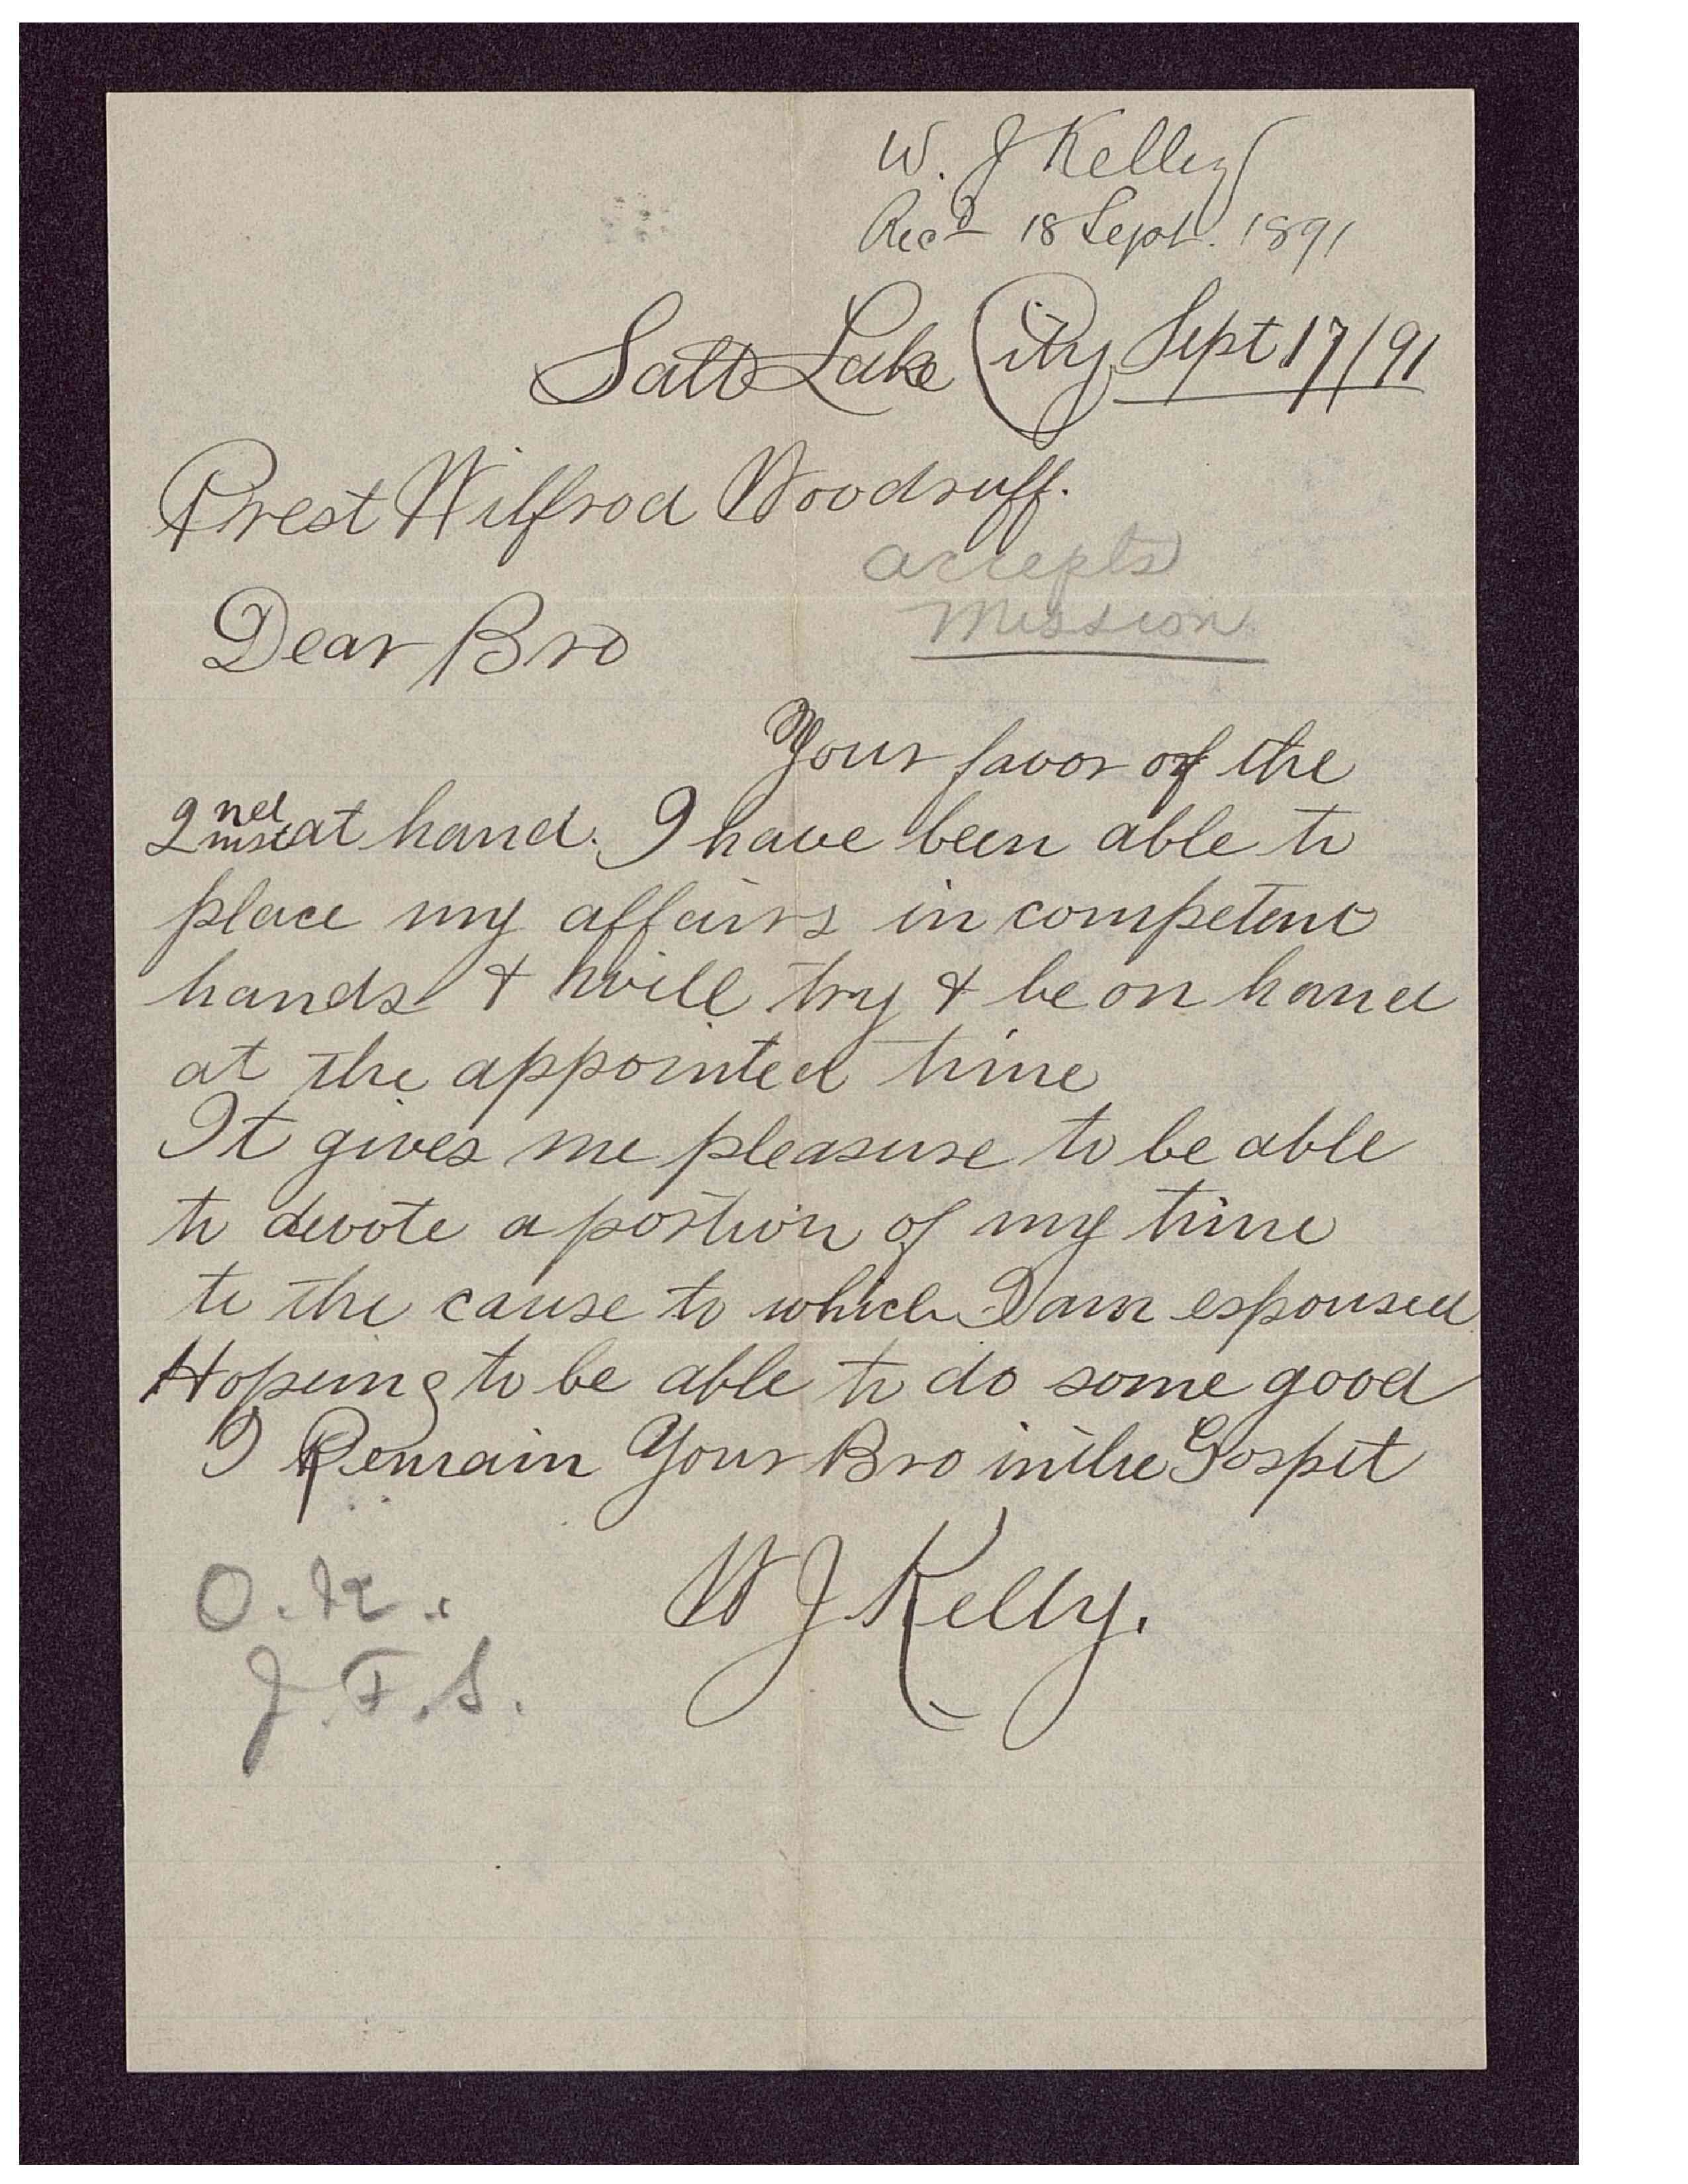 W. J Kelley
Recd 18 Sept. 1891
Salt Lake City, Sept 17/91
Prest Wilfrod Woodruff.
accepts
mission
Dear Bro
Your favor of the
2nd inst at hand. I have been able to
place my affairs in competent
hands & will try & be on hand
at the appointed time
It gives me pleasure to be able
to devote a portion of my time
to the cause to which I am espoused
Hopeing to be able to do some good
I Remain Your Bro in the Gospel
W J Kelly.
O.K.
J. F. S.